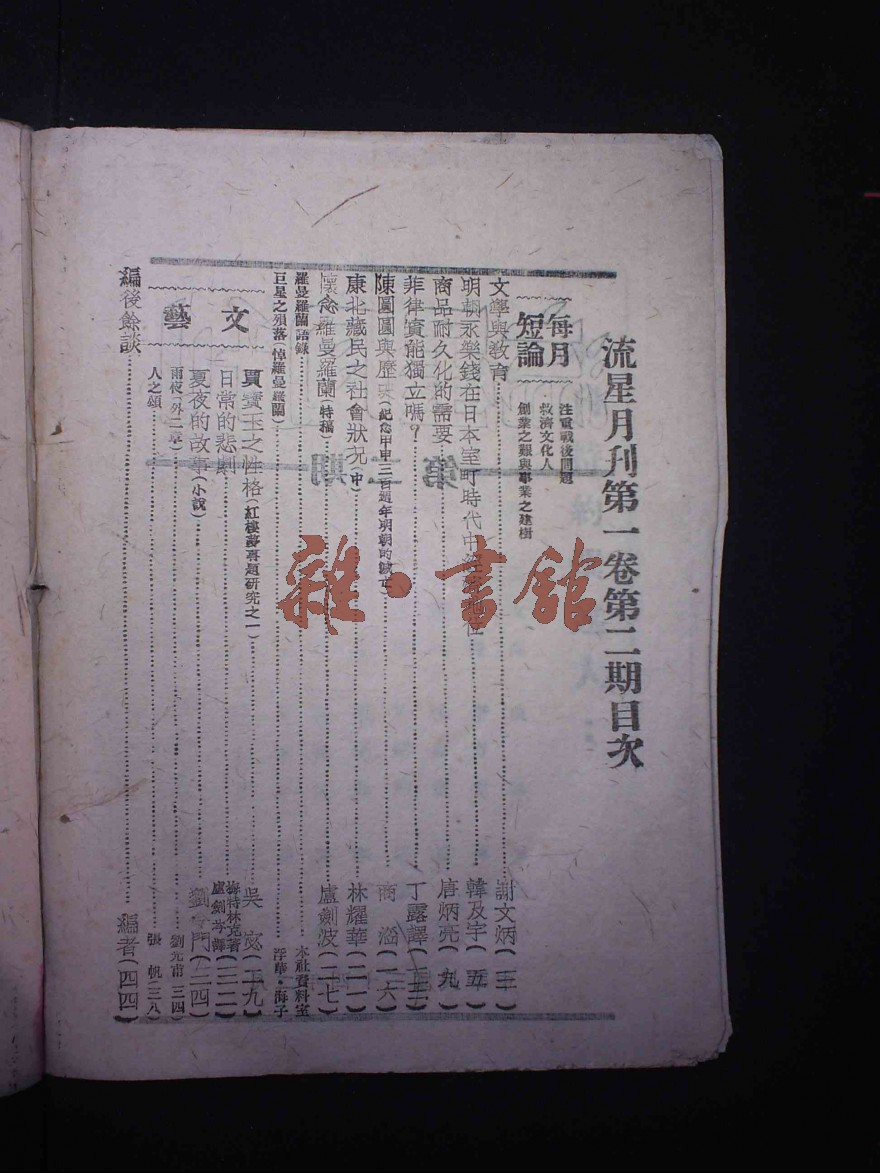 流星月刊第一卷第二期目次
每月短論
注重戰後問題
救濟文化人
創業之艱與事業之建樹
文學與教育 謝文炳(三)
明朝永樂錢在日本室町時代中 韓及宇(五)
商品耐久化的需要 唐炳亮(九)
菲律賓能獨立嗎？ 丁露譯
陳圓圓與歷史(紀念甲申三百週年明朝的滅亡) (一六)
康北藏民之社會狀況(中) 林耀華(二一)
懷念羅曼羅蘭(特稿) 盧劍波(二七)
羅曼羅蘭語錄 本社資料室
巨星之殞落(悼羅曼羅蘭) 海子
文藝
賈寶玉之性格(紅樓夢再題研究之一) 吳宓
日常的悲劇 梅特林克著 盧劍岑譯(三二)
夏夜的故事(小說) 門(二四)
雨夜(外二章) 劉元甫(三四)
人之頌 張帆(三八)
編後餘談 編者(四四)
雜·書館